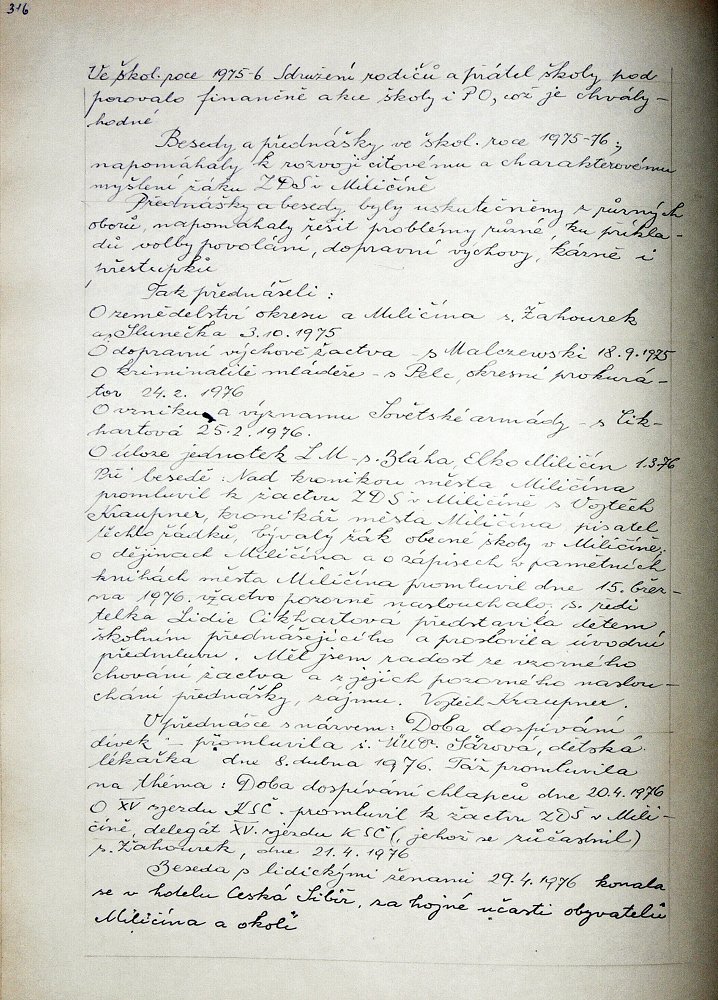 316
Ve škol. roce 1975-6 Sdružení rodičů a přátel školy pod
porovalo finančně akce školy i PO, což je chvály-
hodné
Besedy a přednášky ve škol. roce 1975-76,
napomáhaly k rozvoji citovému a charakterovému
myšlení žáků ZDŠ v Miličíně
Přednášky a besedy, byly uskutečněny z různých
oborů, napomáhaly řešit problémy různé, ku příkla-
du volby povolání, dopravní výchovy, kárné i
přestupků
Tak přednášeli:
O zemědělství okresu a Miličína s. Žahourek
a s. Slunečka 3.10.1975
O dopravní výchově žactva - s Malczewski 18.9.1975
O kriminalitě mládeže - s Pelc, okresní prokurá-
tor 24.2. 1976
O vzniku a významu Sovětské armády - s Cik-
hartová 25.2.1976.
O úloze jednotek LM - s. Bláha, Elko Miličín 1.3.76
Při besedě: Nad kronikou města Miličína
promluvil k žactvu ZDŠ v Miličíně s Vojtěch
Kraupner, kronikář města Miličína, pisatel
těchto řádků, bývalý žák obecné školy v Miličíně,
o dějinách Miličína a o zápisech v pamětních
knihách města Miličína promluvil dne 15. břez-
na 1976. Žactvo pozorně naslouchalo, s. ředi
telka Lidie Cikhartová představila dětem
školním přednášejícího a proslovila úvodní
předmluvu. Měl jsem radost ze vzorného
chování žactva a z jejich pozorného naslou-
chání přednášky, zájmu. Vojtěch Kraupner.
V přednášce s názvem: Doba dospívání
dívek - promluvila s. MUDr. Šárová, dětská
lékařka dne 8. dubna 1976. Táž promluvila
na théma: Doba dospívání chlapců dne 20.4.1976
O XV sjezdu KSČ. promluvil k žactvu ZDŠ v Mili-
číně, delegát XV. sjezdu KSČ (, jehož se zúčastnil)
s. Žahourek, dne 21.4.1976
Beseda s lidickými ženami 29.4.1976 konala
se v hotelu Česká Sibiř, za hojné účasti obyvatelů
Miličína a okolí